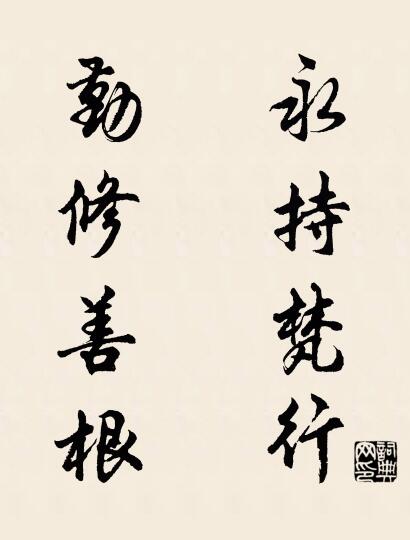 永持梵行
勤修善根
詞典网印